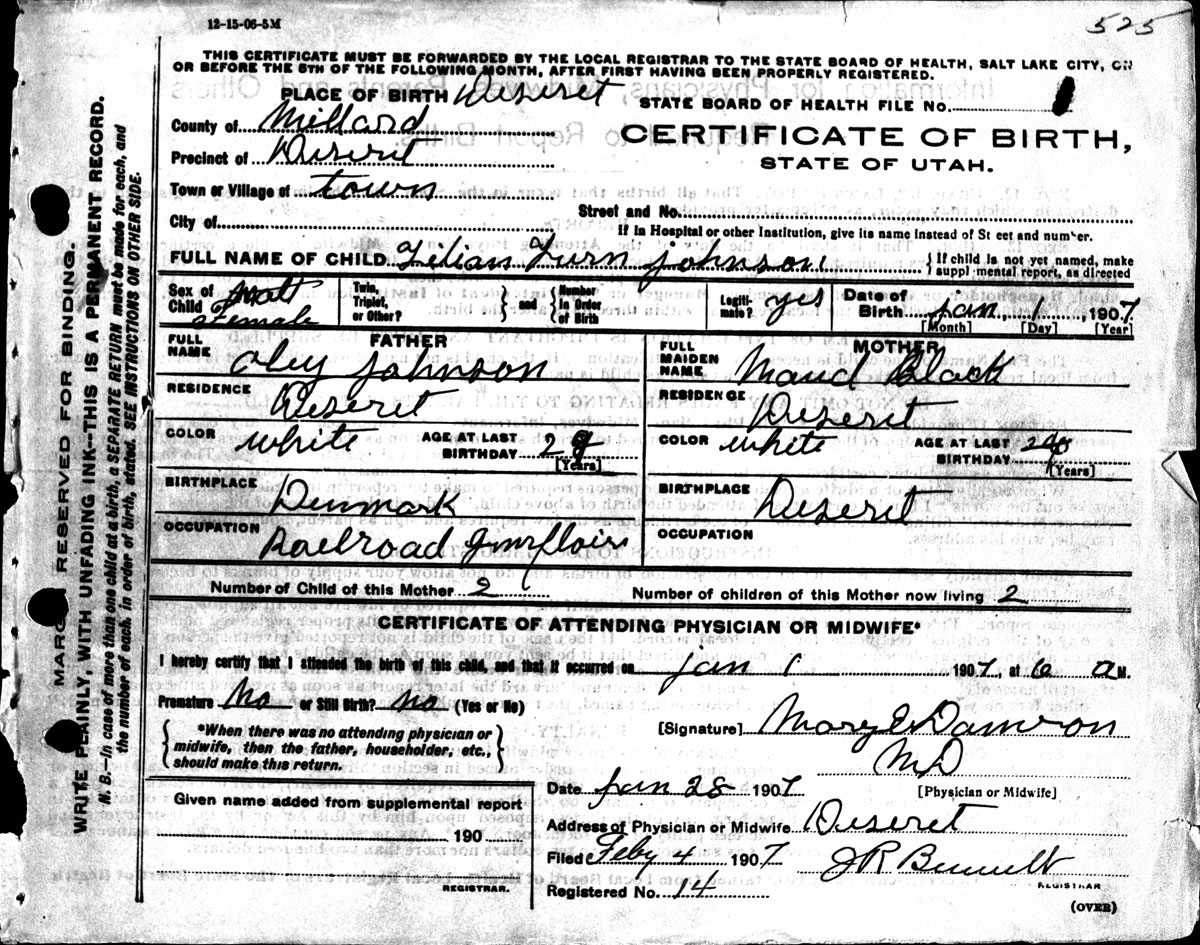 12-15-06-5M
525
THIS CERTIFICATE MUST BE FORWARDED BY THE LOCAL REGISTRAR TO THE STATE BOARD OF HEALTH, SALT LAKE CITY, ON
OR BEFORE THE 5TH OF THE FOLLOWING MONTH, AFTER FIRST HAVING BEEN PROPERLY REGISTERED.
PLACE OF BIRTH Deseret
STATE BOARD OF HEALTH FILE No.
County of Millard
CERTIFICATE OF BIRTH,
Precinct of Deseret
STATE OF UTAH.
Town or Village of town
City of
Street and No.
If in Hospital or other Institution, give its name instead of St eet and number.
FULL NAME OF CHILD Lilian Furn Johnson
{ If child is not yet named, make suppl mental report, as directed
Sex of Child Female
Twin, Triplet, or Other? } and { Number in Order of Birth
Legiti-mate? yes
Date of Birth Jan, 1, 1907
[Month] [Day] [Year]
FATHER
MOTHER
FULL NAME Oley Johnson
FULL MAIDEN NAME Maud Black
RESIDENCE Deseret
RESIDENCE Deseret
COLOR white AGE AT LAST BIRTHDAY 29 [Years]
COLOR white AGE AT LAST BIRTHDAY [Years]
BIRTHPLACE Denmark
BIRTHPLACE Deseret
OCCUPATION Railroad
OCCUPATION
Number of Child of this Mother 2
Number of children of this Mother now living 2
CERTIFICATE OF ATTENDING PHYSICIAN OR MIDWIFE*
I hereby certify that I attended the birth of this child, and that it occurred on Jan 1 1907, at 6 a M.
Premature No or Still Birth? no (Yes or No)
{ *When there was no attending physician or midwife, then the father, householder, etc., should make this return. }
[Signature] Mary E Damron
MD
[Physician or Midwife]
Date Jan 28 1907
Given name added from supplemental report
Address of Physician or Midwife Deseret
190
Filed Feby 4 1907
J R Bennett
REGISTRAR.
REGISTRAR
Registered No. 14
(OVER)
MARGIN RESERVED FOR BINDING.
WRITE PLAINLY, WITH UNFADING INK--THIS IS A PERMANENT RECORD.
N. B.--In case of more than one child at a birth, a SEPARATE RETURN must be made for each, and
the number of each, in order of birth, stated. SEE INSTRUCTIONS ON OTHER SIDE.